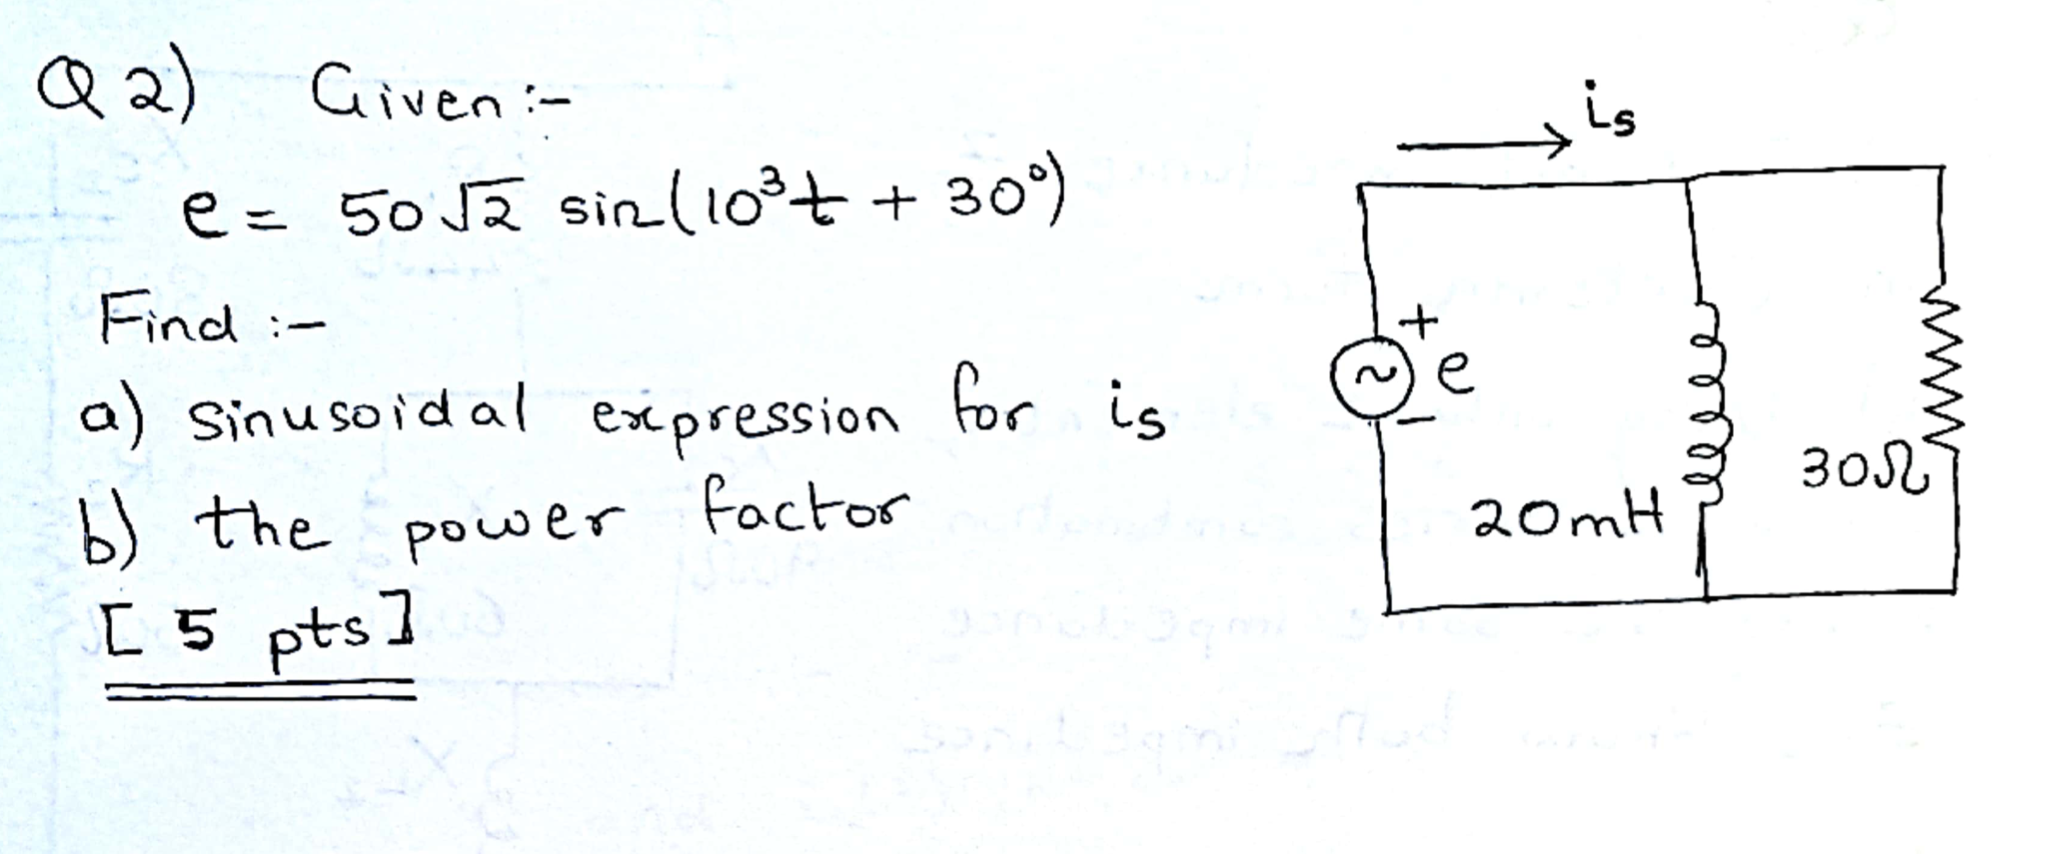 Q2) Given :-
e = 50 √2 sin(10³t + 30°)
Find :-
a) sinusoidal expression for is
b) the power factor
[ 5 pts ]
is
+
e
-
20mH
30Ω